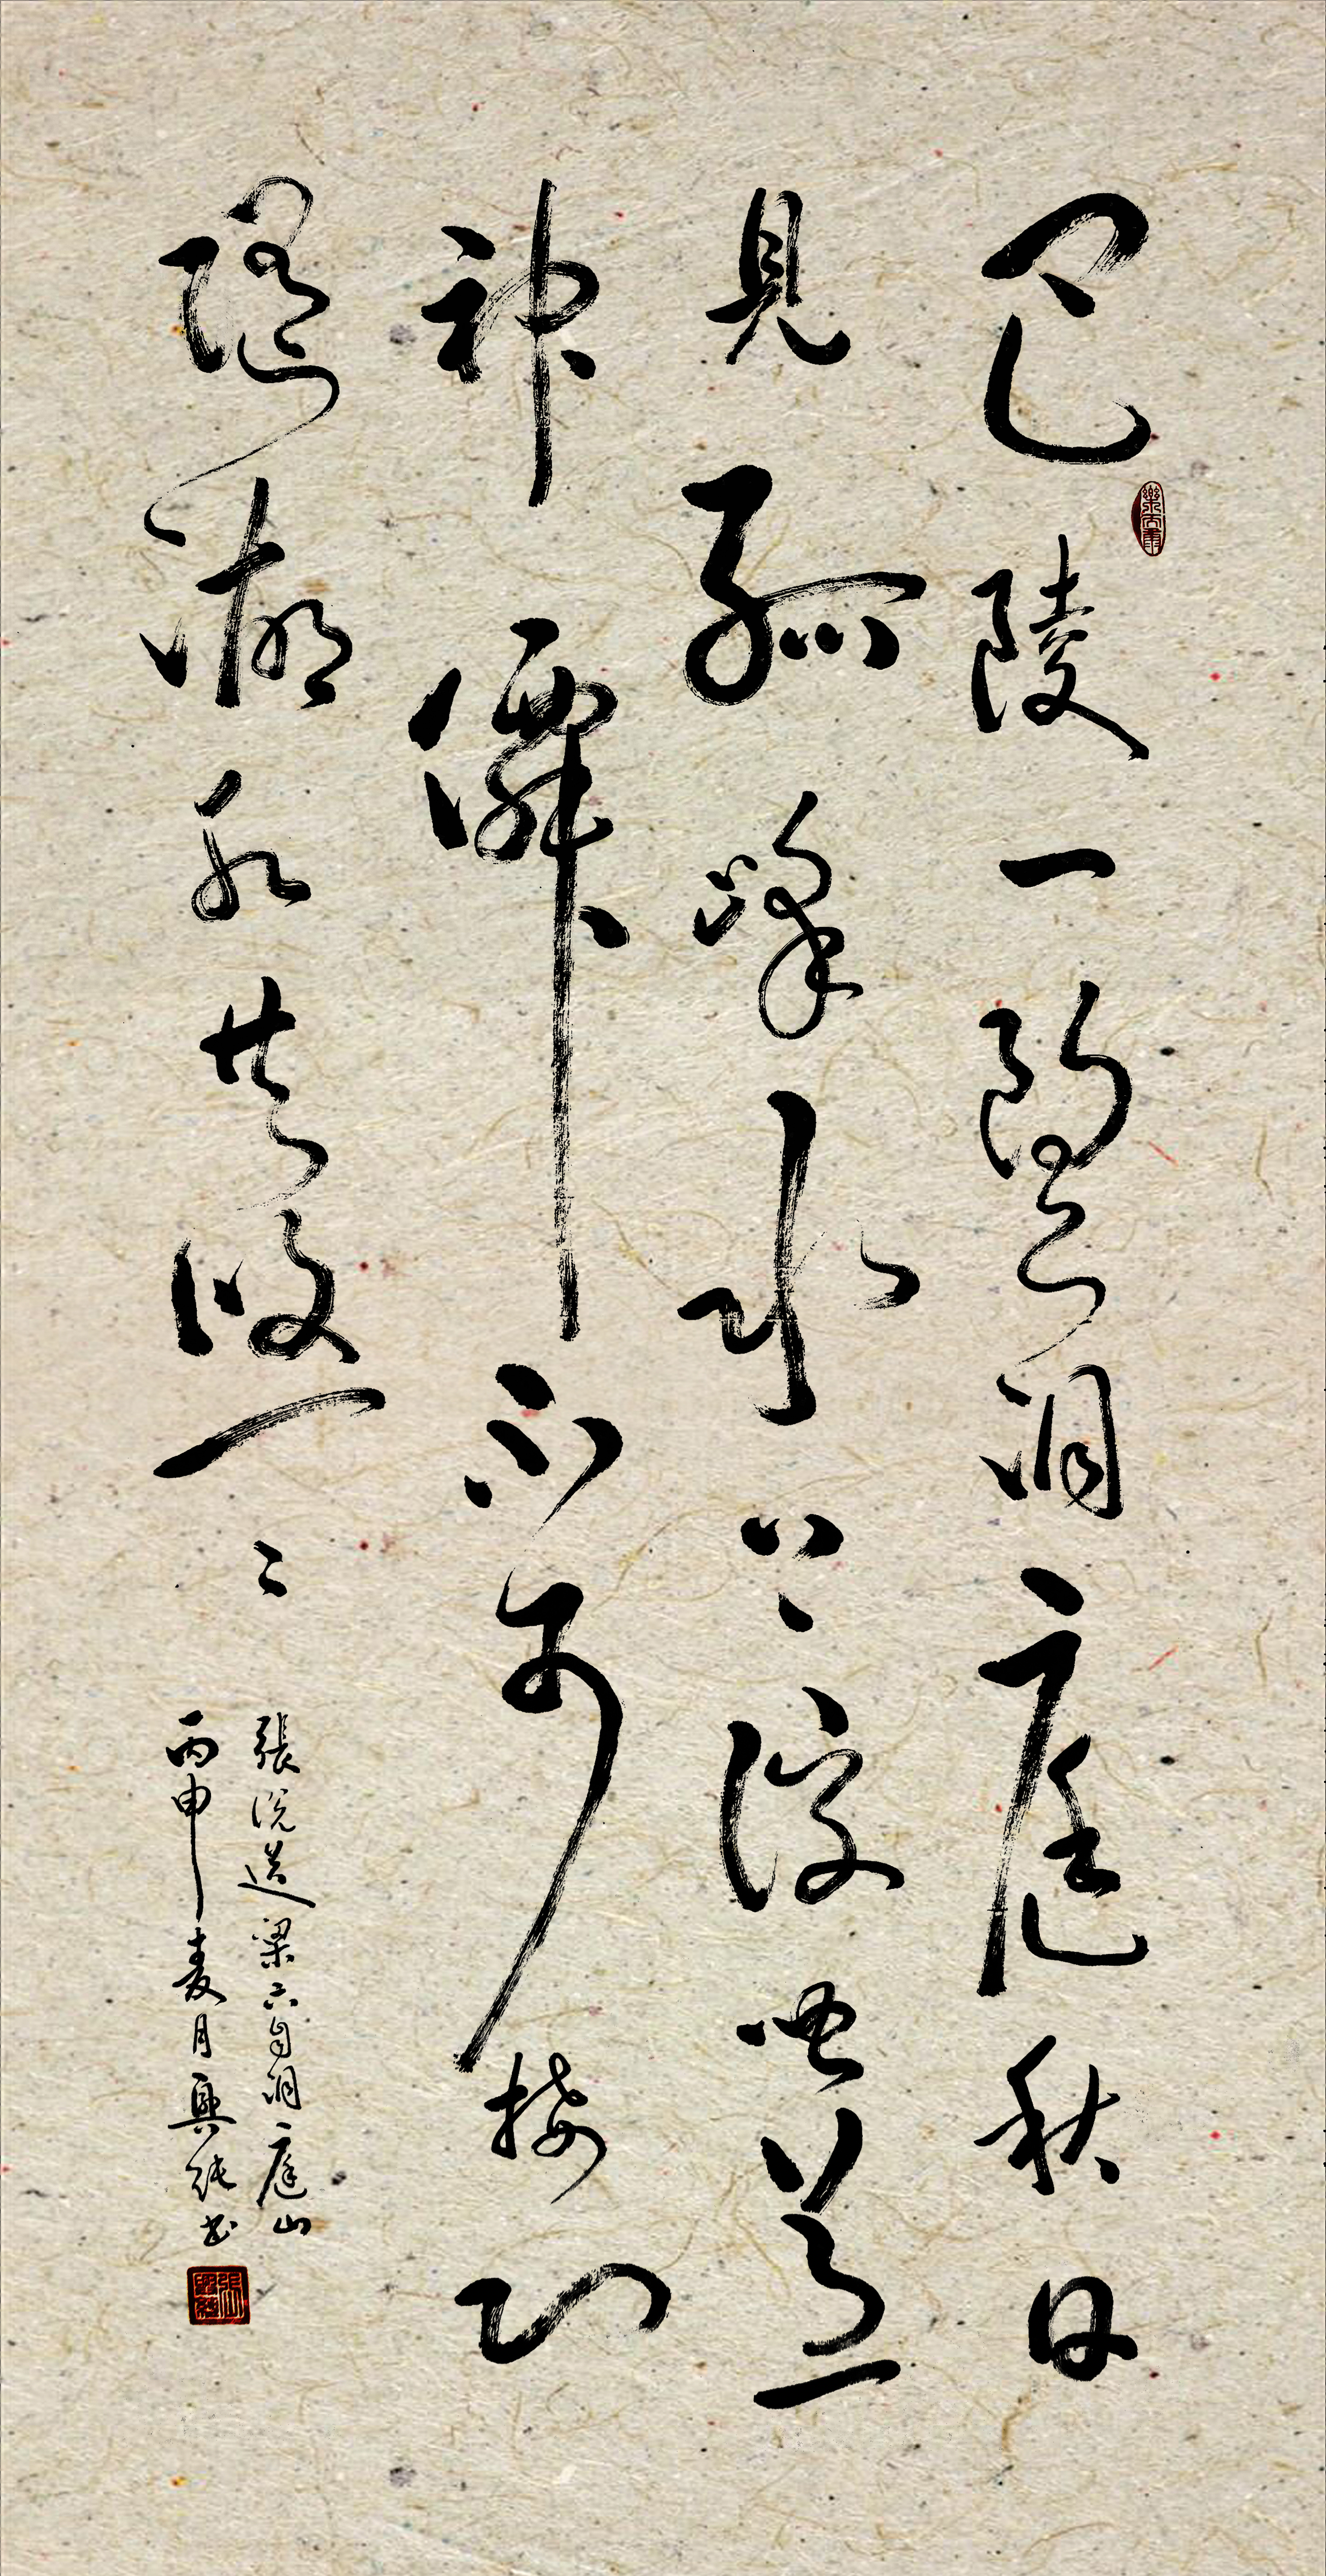 巴陵一望洞庭秋日
見孤峰水上浮聞道
神僊不可接心
隨湖水共悠々
張說送梁六自洞庭山
丙申麦月興純书